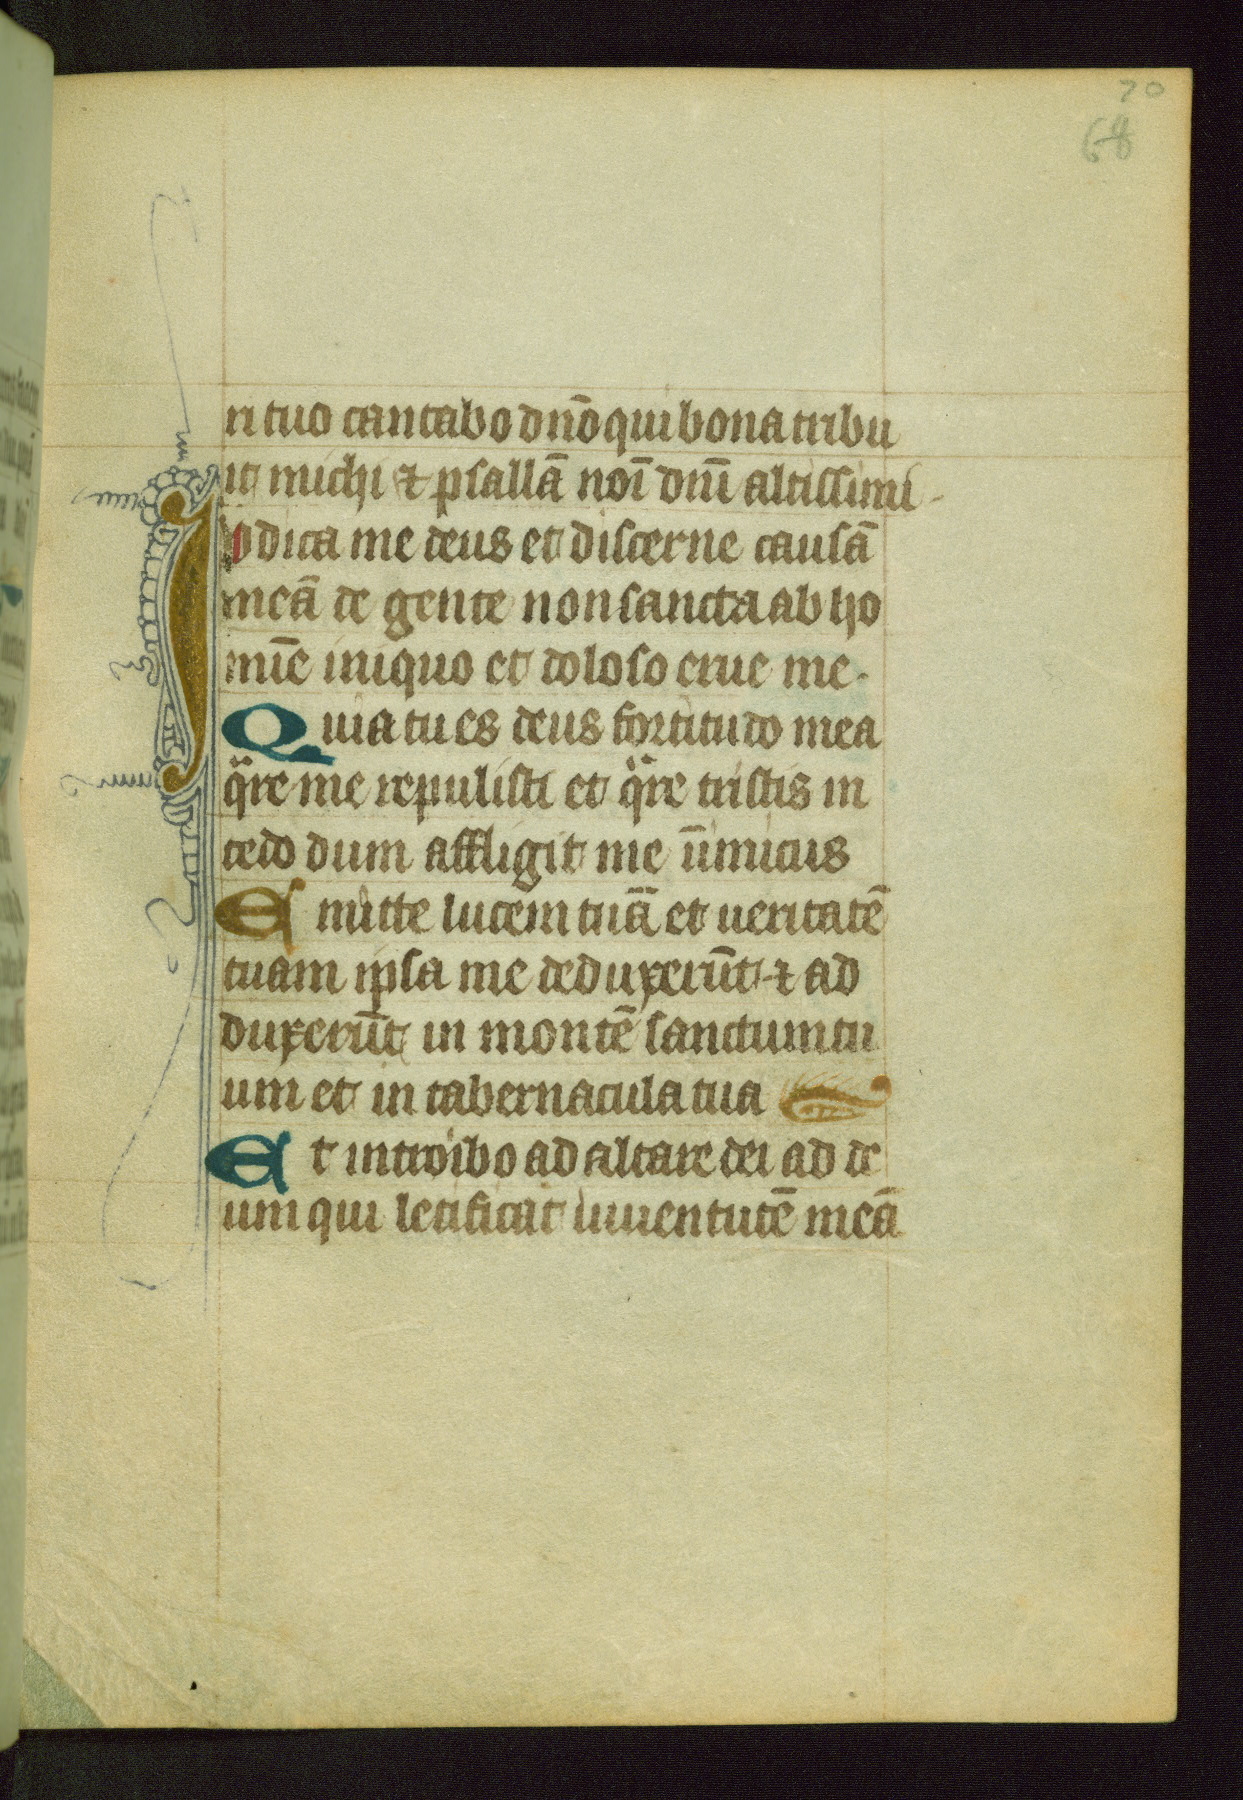 70
68
ri tuo cantabo dn̄o qui bona tribu
it michi ⁊ psallā noī dn̄i altissimi
Iudica me deus et discerne causā
meā de gente non sancta ab ho
mīe iniquo et doloso erue me.
Quia tu es deus fortitudo mea
qͣre me repulisti et qͣre tristis in
cedo dum affligit me īimicus
Emitte lucem tuā et ueritatē
tuam ipsa me deduxerūt ⁊ ad
duxerūt in montē sanctum tu
um et in tabernacula tua
Et introibo ad altare dei ad de
um qui letificat iuuentutē meā